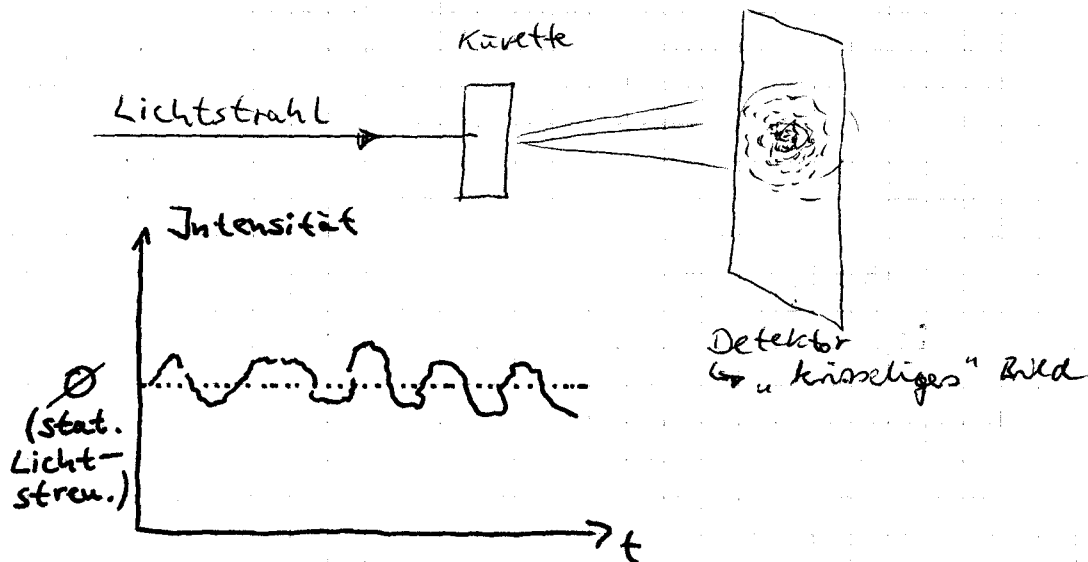 Küvette
Lichtstrahl
Intensität
Detektor
↳ „ krisseliges “ Bild
Ø
(stat.
Licht-
streu.)
t